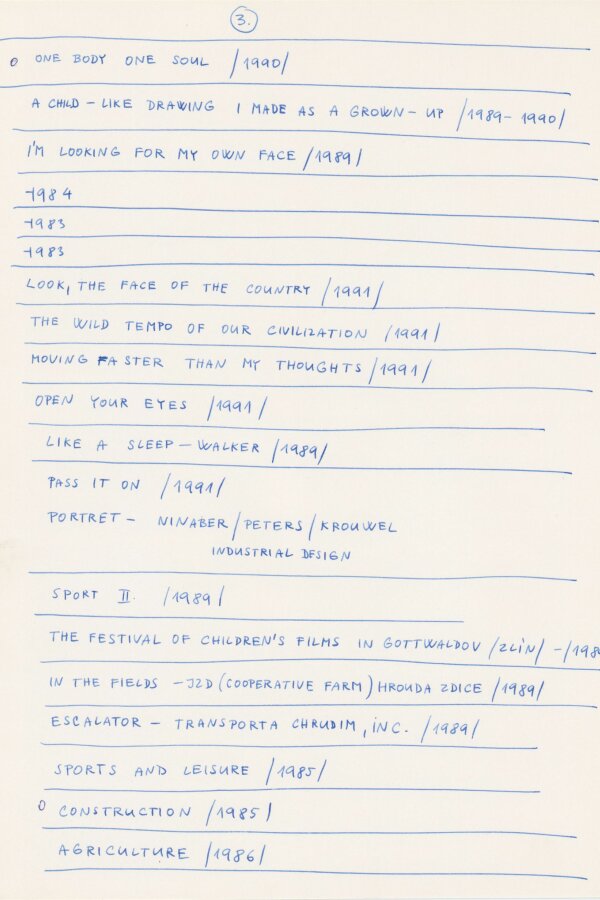 3.
o ONE BODY ONE SOUL /1990/
A CHILD - LIKE DRAWING I MADE AS A GROWN - UP /1989 - 1990/
I'M LOOKING FOR MY OWN FACE /1989/
1984
1983
1983
LOOK, THE FACE OF THE COUNTRY /1991/
THE WILD TEMPO OF OUR CIVILIZATION /1991/
MOVING FASTER THAN MY THOUGHTS /1991/
OPEN YOUR EYES /1991/
LIKE A SLEEP - WALKER /1989/
PASS IT ON /1991/
PORTRET - NINABER/PETERS/KROUWEL
INDUSTRIAL DESIGN
SPORT II. /1989/
THE FESTIVAL OF CHILDREN'S FILMS IN GOTTWALDOV /ZLÍN/ - /198
IN THE FIELDS - JZD (COOPERATIVE FARM) HROUDA ZDICE /1989/
ESCALATOR - TRANSPORTA CHRUDIM, INC. /1989/
SPORTS AND LEISURE /1985/
o CONSTRUCTION /1985/
AGRICULTURE /1986/